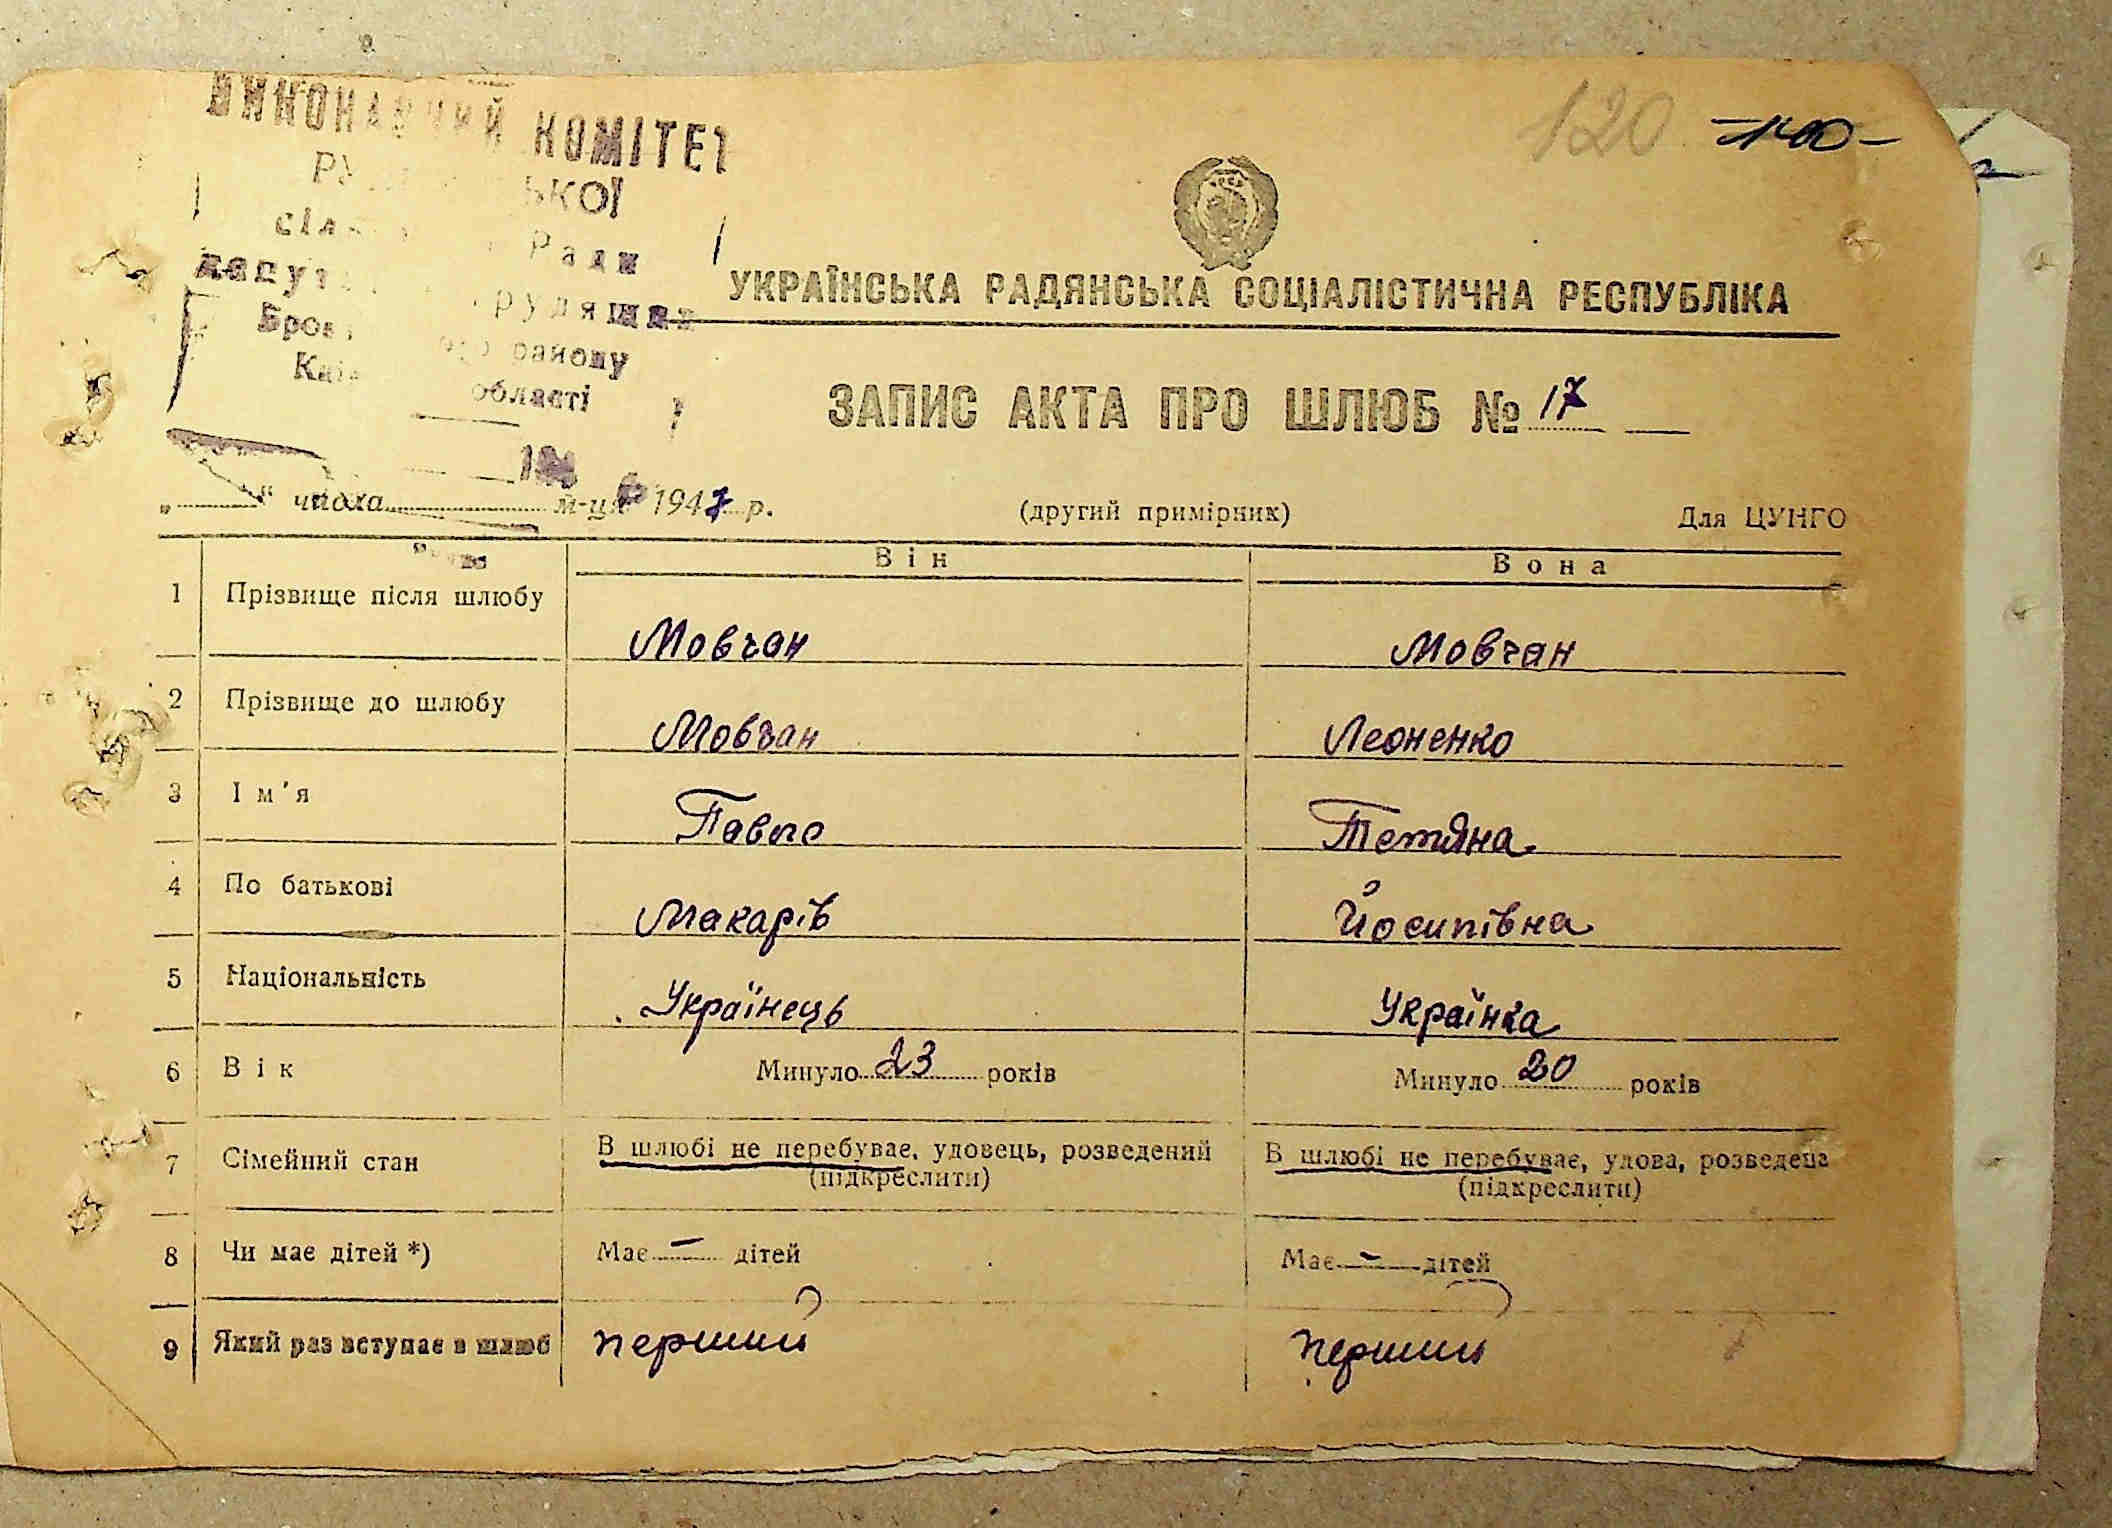 ВИКОНАВЧИЙ КОМІТЕТ
Ради
трудящих
району
області
120
УКРАЇНСЬКА РАДЯНСЬКА СОЦІАЛІСТИЧНА РЕСПУБЛІКА
ЗАПИС АКТА ПРО ШЛЮБ № 17
„ “ числа м-ця 1947 р. (другий примірник) Для ЦУНГО
Він Вона
1 Прізвище після шлюбу Мовчан Мовчан
2 Прізвище до шлюбу Мовчан Леоненко
3 Ім'я Павло Тетяна
4 По батькові Макарів Йосипівна
5 Національність Українець Українка
6 Вік Минуло 23 років Минуло 20 років
7 Сімейний стан В шлюбі не перебуває, удовець, розведений В шлюбі не перебуває, удова, розведена
(підкреслити) (підкреслити)
8 Чи має дітей *) Має – дітей Має – дітей
9 Який раз вступає в шлюб перший перший